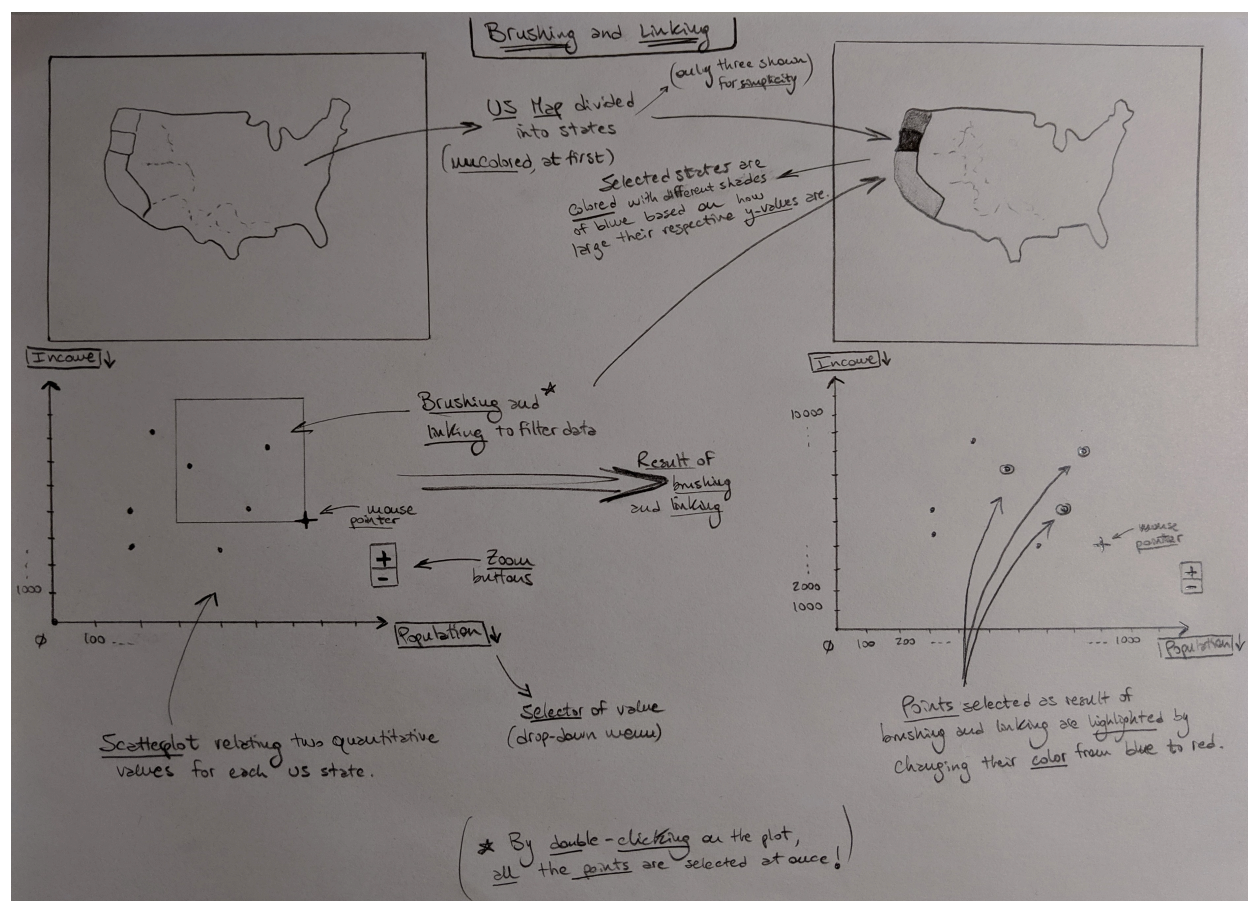 Brushing and Linking
US Map divided
into states
(uncolored, at first)
(only three shown
for simplicity)
Selected states are
colored with different shades
of blue based on how
large their respective y-values are.
Income ↓
Brushing and *
linking to filter data
mouse
pointer
+
-
Zoom
buttons
1000
Ø
100 ....
Population ↓
Selector of value
(drop-down menu)
Scatterplot relating two quantitative
values for each US state.
Result of
brushing
and linking
Income ↓
10000
2000
1000
Ø
100
200
---
--- 1000
Population ↓
mouse
pointer
+
-
Points selected as result of
brushing and linking are highlighted by
changing their color from blue to red.
(* By double-clicking on the plot,
all the points are selected at once!)